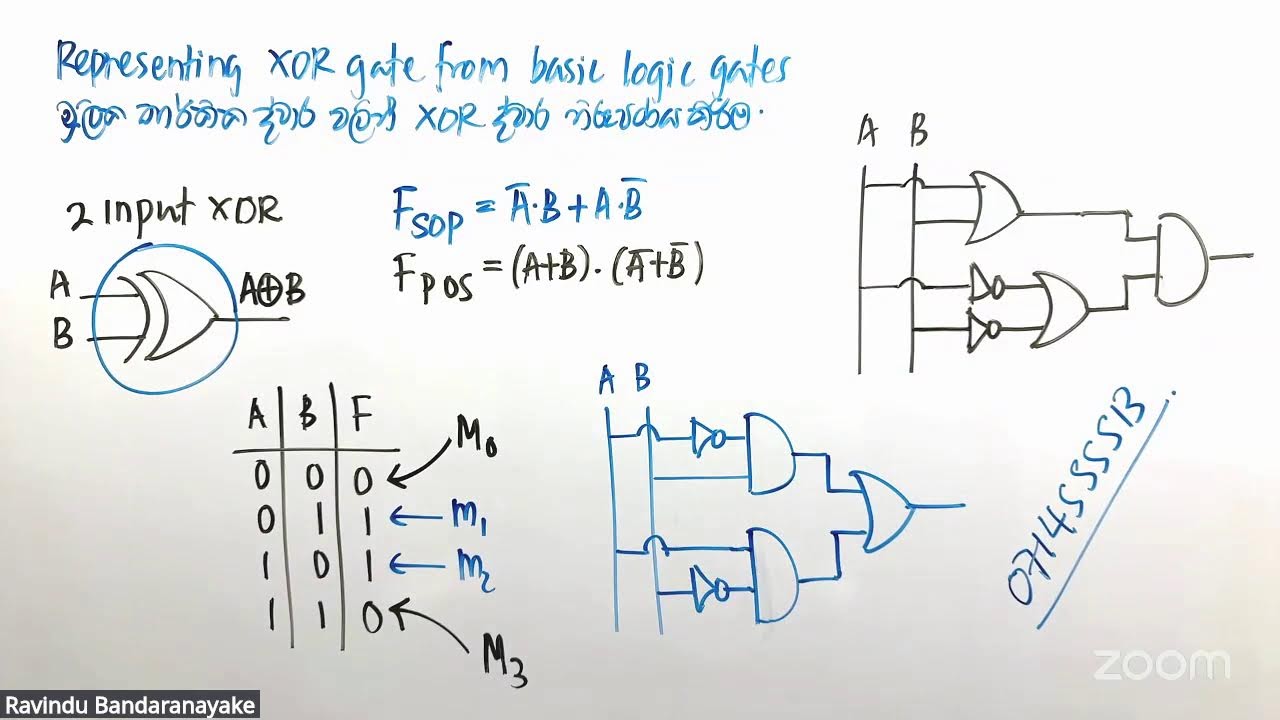 Representing XOR gate from basic logic gates
මූලික තාර්කික ද්වාර වලින් XOR ද්වාර නිරූපණය කිරීම.
2 Input XOR
A
B
A⊕B
F_SOP = A̅·B + A·B̅
F_POS = (A+B)·(A̅+B̅)
A B
A B F
0 0 0 M₀
0 1 1 m₁
1 0 1 m₂
1 1 0 M₃
A B
0714555513
zoom
Ravindu Bandaranayake